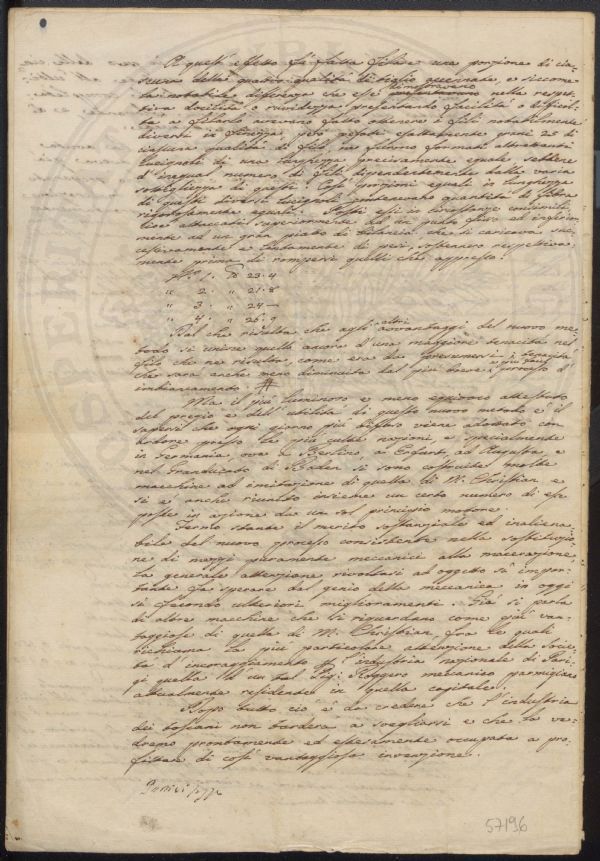 A quest'effetto fu fatta filare una porzione di cia-
scuna delle quattro qualità di tiglio accennate, e siccome
la notabile differenza che esse nella respet-
tiva docilità o ruvidezza presentando facilità o difficol-
tà a filarle avevano fatto ottenere i fili notabilmente
diversi in finezza, però pesati esattamente grani 25 di
ciascuna qualità di filo ne furono formati altrettanti
lucignoli di una lunghezza precisamente eguale, sebbene
d'inegual numero di fili dipendentemente dalla varia
sottigliezza di questi. Così porzioni eguali in lunghezza
di questi diversi lucignoli contenevano quantità di fibra
rigorosamente eguali. Posti essi in circostanze consimili,
cioè attaccati superiormente ad un punto fisso ed inferior-
mente ad un gran piatto di bilancia che si caricava suc-
cessivamente e lentamente di pesi, sostennero respettiva-
mente prima di rompersi quelli che appresso:
N.º 1. 23.4
" 2. " 21.8
" 3. " 24 —
" 4. " 26.9
Dal che risulta che agli altri avvantaggi del nuovo me-
todo si unisce quello ancora d'una maggiore tenacità nel
filo che ne risulta, come era da presumersi, tenacità
che sarà anche meno diminuita dal più breve e più facile processo d'
imbiancamento. #
Ma il più luminoso e meno equivoco attestato
del pregio e dell'utilità di questo nuovo metodo è il
sapersi che ogni giorno più diffuso viene adottato con
ardore presso le più culte nazioni, e specialmente
in Germania, ove a Berlino, a Erfurt, ad Augusta, e
nel Granducato di Baden si sono costruite molte
macchine ad imitazione di quella di M. Christian, e
si è anche riunito insieme un certo numero di esse
poste in azione da un sol principio motore.
Fermo stante il merito sostanziale ed inaliena-
bile del nuovo processo consistente nella sostituzio-
ne di mezzi puramente meccanici alla macerazione
la generale attenzione rivoltasi ad oggetto sì impor-
tante fa sperare dal genio della meccanica in oggi
sì fecondo ulteriori miglioramenti. Già si parla
di altre macchine che si riguardano come più van-
taggiose di quella di M. Christian, fra le quali
richiama la più particolare attenzione della Socie-
tà d'incoraggiamento per l'industria nazionale di Pari-
gi quella d'un tal Sig: Roggero meccanico parmigiano
attualmente residente in quella capitale.
Dopo tutto ciò è da credere che l'industria
dei toscani non tarderà a svegliarsi e che la ve-
dremo prontamente ed estesamente occupata a pro-
fittare di così vantaggiosa invenzione.
57196